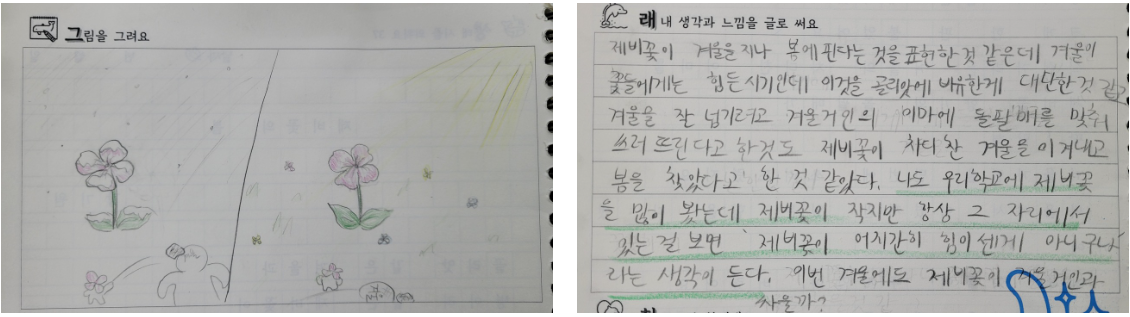 그림을 그려요
래 내 생각과 느낌을 글로 써요
제비꽃이 겨울을 지나 봄에 핀다는 것을 표현한 것 같은데 겨울이
꽃들에게는 힘든 시기인데 이것을 골리앗에 비유한게 대단한 것 같다
겨울을 잘 넘기려고 겨울거인의 이마에 돌팔매를 맞춰
쓰러뜨린다고 한것도 제비꽃이 차디찬 겨울을 이겨내고
봄을 찾았다고 한 것 같았다. 나도 우리학교에 제비꽃
을 많이 봤는데 제비꽃이 작지만 항상 그 자리에서
있는 걸 보면 제비꽃이 어지간히 힘이 센게 아니구나
라는 생각이 든다. 이번 겨울에도 제비꽃이 겨울거인과
싸울까?